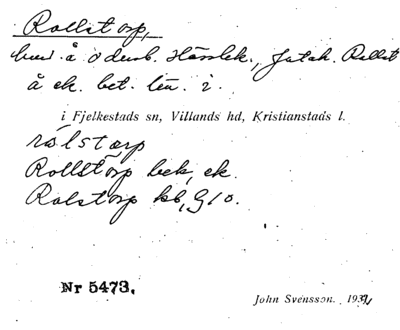 Rollstorp,
hus å odens. Hässlek., Jatah. Rollst
å ek. bet. len. 2.
i Fjelkestads sn, Villands hd, Kristianstads l.
rålstårp
Rollstorp bek, ek.
Rolstorp kb, G10.
Nr 5473.
John Svensson. 1932